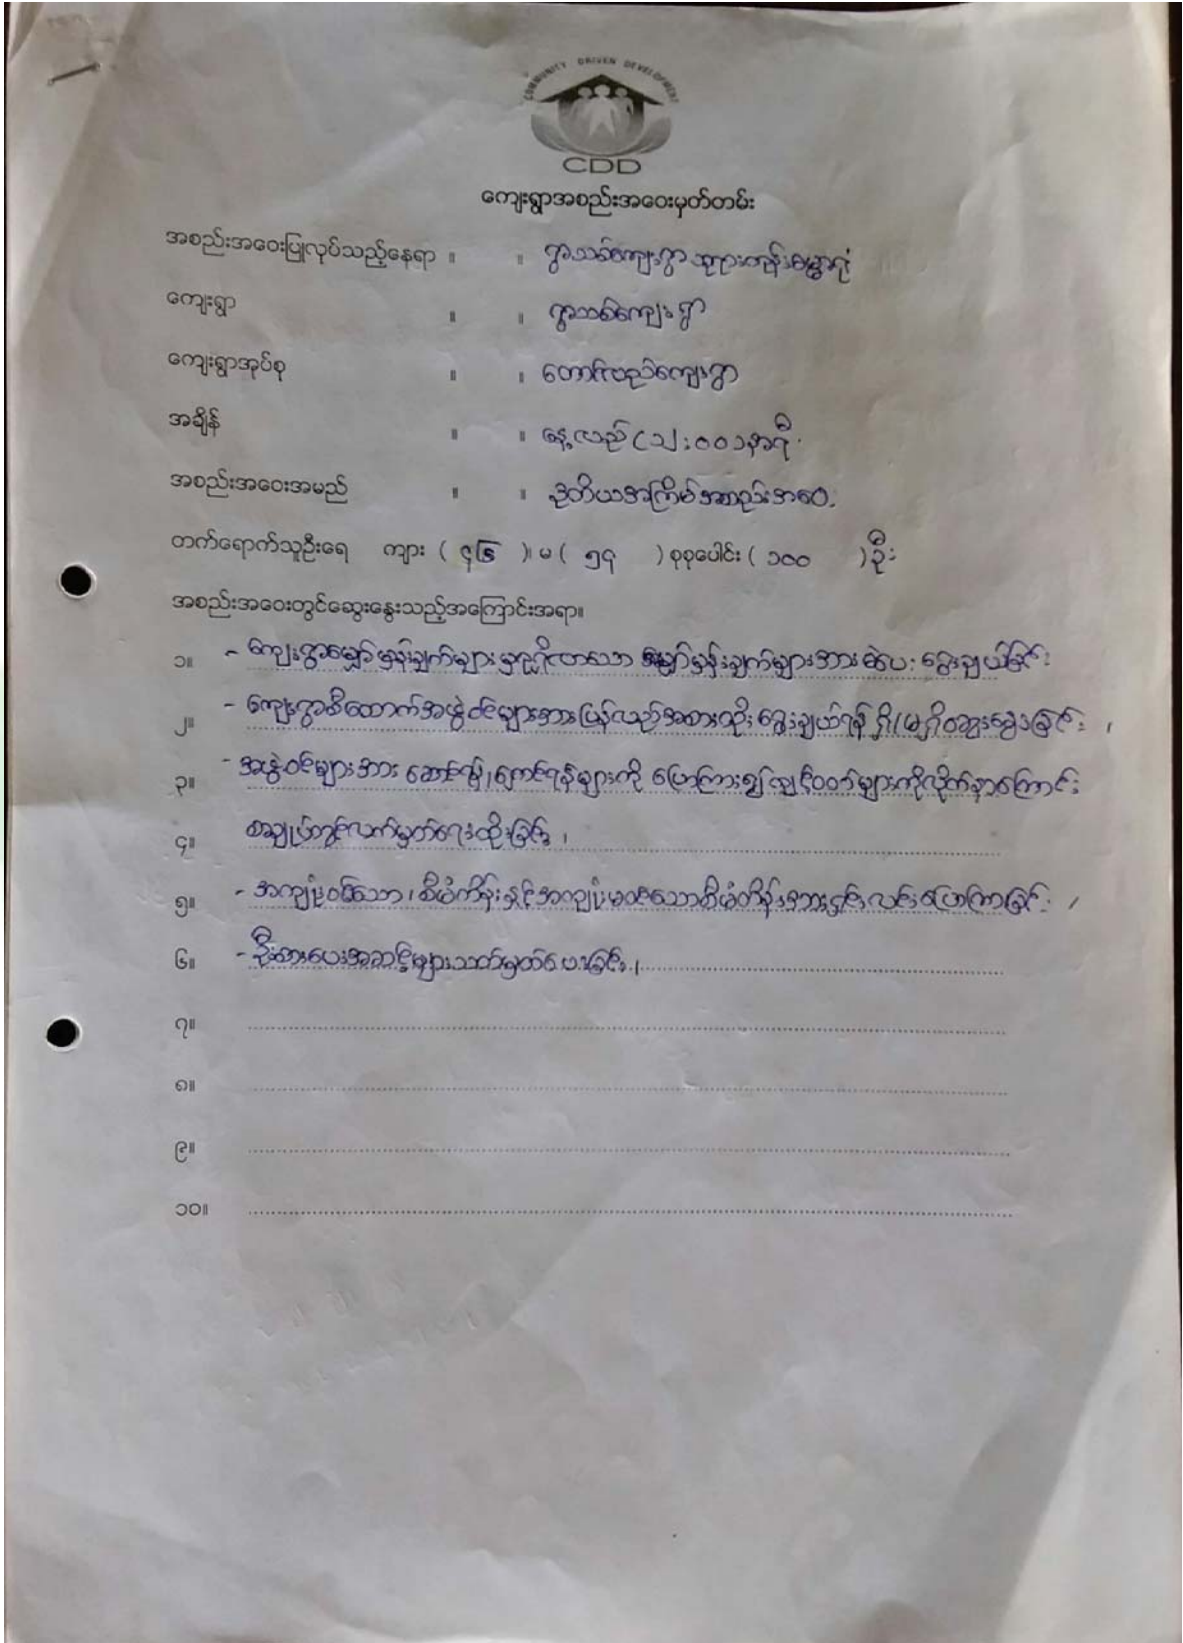 COMMUNITY DRIVEN DEVELOPMENT
CDD
ကျေးရွာအစည်းအဝေးမှတ်တမ်း
အစည်းအဝေးပြုလုပ်သည့်နေရာ ။ ။ ရွာသစ်ကျေးရွာ ဘုရားကုန်းဓမ္မာရုံ
ကျေးရွာ ။ ။ ရွာသစ်ကျေးရွာ
ကျေးရွာအုပ်စု ။ ။ တောင်ဗည်ကျေးရွာ
အချိန် ။ ။ နေ့လည် (၁း၀၀) နာရီ
အစည်းအဝေးအမည် ။ ။ ဒုတိယအကြိမ်အစည်းအဝေး
တက်ရောက်သူဦးရေ ကျား ( ၄၆ )၊ မ ( ၅၄ ) စုစုပေါင်း ( ၁၀၀ ) ဦး
အစည်းအဝေးတွင်ဆွေးနွေးသည့်အကြောင်းအရာ။
၁။ - ကျေးရွာမျှော်မှန်းချက်များမှရရှိလာသော မျှော်မှန်းချက်များအား မဲပေးရွေးချယ်ခြင်း
၂။ - ကျေးရွာစီထောက်အဖွဲ့ဝင်များအားပြန်လည်အစားထိုးရွေးချယ်ရန် ရှိ/မရှိဆွေးနွေးခြင်း ၊
၃။ - အဖွဲ့ဝင်များအား ဆောင်ရန်၊ရှောင်ရန်များကို ပြောကြား၍ ကျင့်ဝတ်များကိုလိုက်နာကြောင်း
၄။ စာချုပ်တွင်လက်မှတ်ရေးထိုးခြင်း ၊
၅။ - အကျုံးဝင်သော၊ စီမံကိန်းနှင့်အကျုံးမဝင်သောစီမံကိန်းအားရှင်းလင်းပြောကြားခြင်း ၊
၆။ - ဦးစားပေးအဆင့်များသတ်မှတ်ပေးခြင်း ၊
၇။
၈။
၉။
၁၀။